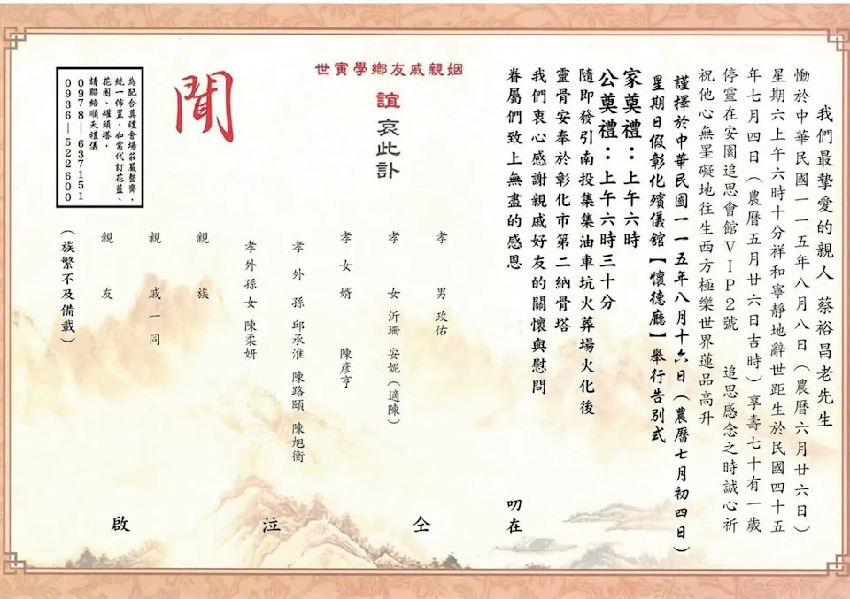 我們最摯愛的親人 蔡裕昌老先生
慟於中華民國一一五年八月八日（農曆六月廿六日）
星期六上午六時十分祥和寧靜地辭世距生於民國四十五
年七月四日（農曆五月廿六日吉時）享壽七十有一歲
停靈在安園追思會館VIP2號 追思感念之時誠心祈
祝他心無罣礙地往生西方極樂世界蓮品高升
謹擇於中華民國一一五年八月十六日（農曆七月初四日）
星期日假彰化殯儀館【懷德廳】舉行告別式
家奠禮：上午六時
公奠禮：上午六時三十分
隨即發引南投集集油車坑火葬場火化後
靈骨安奉於彰化市第二納骨塔
我們衷心感謝親戚好友的關懷與慰問
眷屬們致上無盡的感恩
叨在
世寅學鄉友戚親姻
誼 哀此訃
聞
孝男 玫佑
孝女 沂珊 安妮（適陳）
孝女婿 陳彦亨
孝外孫 邱承淮 陳路頤 陳旭衡
孝外孫女 陳柔妍
親族
親戚一同
親友
（族繁不及備載）
仝 泣 啟
為配合奠禮會場莊嚴整齊，
統一佈置，如需代訂花藍、
花圈、罐頭塔，
請聯絡順天禮儀
0978—637151
0936—522600